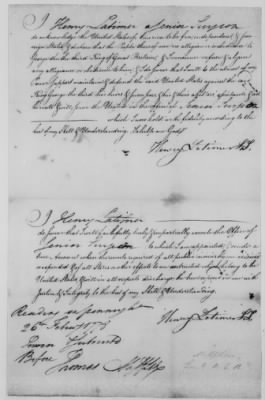 I Henry Latimer a Senior Surgeon
do acknowledge the United States of America to be free, independent &
reign States & declare that the People thereof owe no allegiance or obedience to
George the third King of Great Britain; & I renounce refuse & abjure
any allegiance or obedience to him; & I do swear that I will to the utmost of my
Power support maintain & defend the said United States against the said
King George the third, his heirs & successors & his & their
& will serve the United States in the office of Senior Surgeon
which I now hold with fidelity, according to the
best of my Skill & Understanding. So help me God
Henry Latimer
I Henry Latimer
do swear that I will faithfully truly & impartially execute the Office of
Senior Surgeon to which I am appointed, & render a
true Account when thereunto required of all public monies by me received
or expended & of all Stores or other effects to me entrusted which belong to the
United States & will in all respects discharge the trust reposed in me with
Justice & Integrity to the best of my Skill & Understanding.
Henry Latimer
Sworn
Before
Thomas